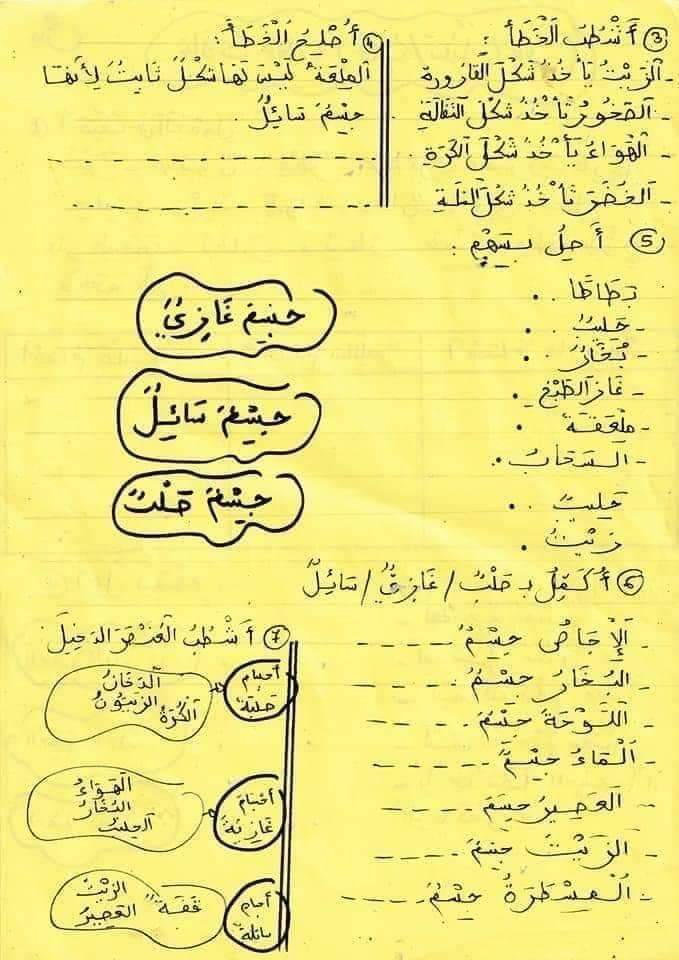 ③ أَشْطُبُ الْخَطَأَ :
- الزَيْتُ يَأْخُذُ شَكْلَ القَارُورَةِ
- الصُخُورُ تَأْخُذُ شَكْلَ النَقَّالَةِ
- الْهَوَاءُ يَأْخُذُ شَكْلَ الْكُرَةِ
- الخُضَرُ تَأْخُذُ شَكْلَ السَلَّةِ
④ أُصْلِحُ الْخَطَأَ :
المِلْعَقَةُ لَيْسَ لَهَا شَكْلٌ ثَابِتٌ لِأَنَّهَا
جِسْمٌ سَائِلٌ
⑤ أَصِلُ بِسَهْمٍ :
- بَطَاطَا
- حَلِيبٌ
- بُخَارٌ
- غَازُ الطَبْخِ
- مِلْعَقَةٌ
- السَحَابُ
حَلِيبٌ
زَيْتٌ
جِسْمٌ غَازِيٌّ
جِسْمٌ سَائِلٌ
جِسْمٌ صَلْبٌ
⑥ أُكَمِّلُ بـ صَلْبٌ / غَازِيٌّ / سَائِلٌ
- الْإِجَّاصُ جِسْمٌ
- البُخَارُ جِسْمٌ
- اللَّوْحَةُ جِسْمٌ
- الْمَاءُ جِسْمٌ
- العَصِيرُ جِسْمٌ
- الزَيْتُ جِسْمٌ
- الْمِسْطَرَةُ جِسْمٌ
⑦ أَشْطُبُ الْعُنْصُرَ الدَخِيلَ
أجسام
صلبة
الدُخَانُ
الزيتونُ
الكُرَةُ
أجسام
غازية
الهَوَاءُ
البُخَارُ
الحليبُ
أجسام
سائلة
الزيْتُ
العَصِيرُ